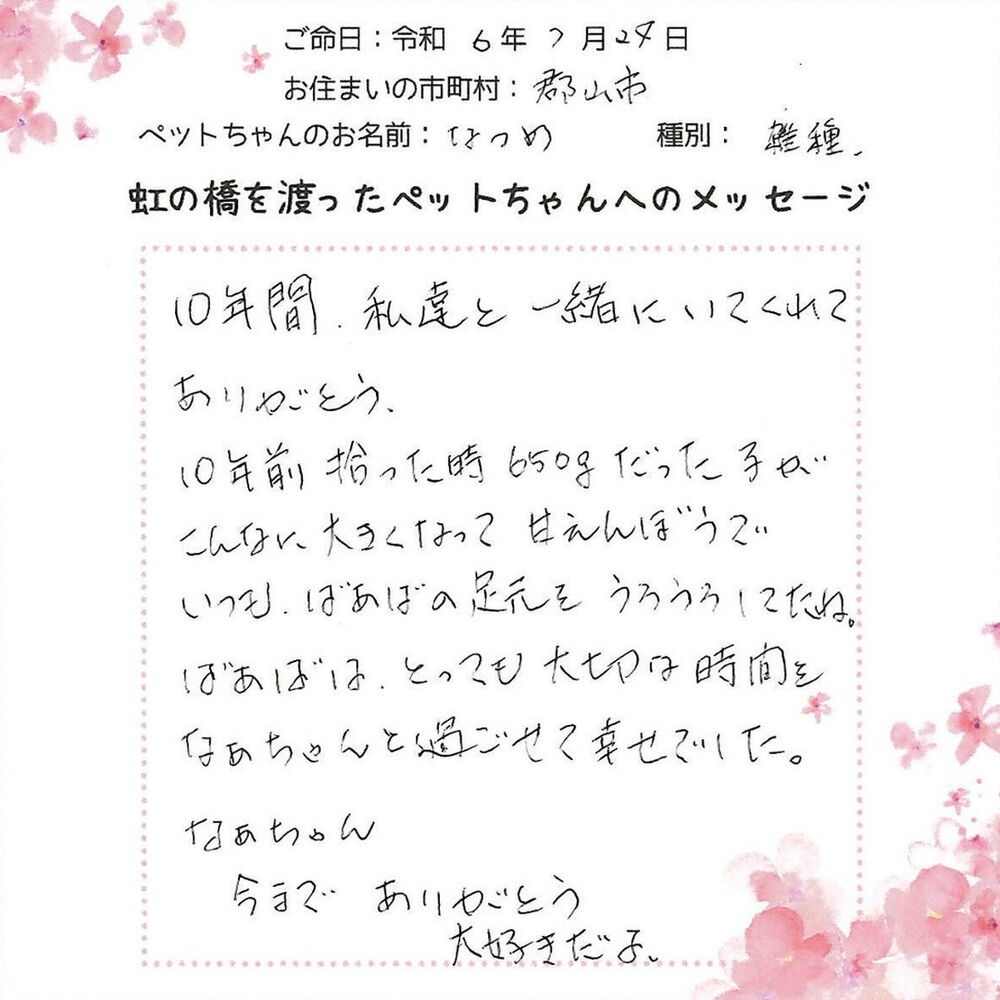 ご命日：令和 6年 7月28日
お住まいの市町村：郡山市
ペットちゃんのお名前：なつめ 種別：雑種、
虹の橋を渡ったペットちゃんへのメッセージ
10年間、私達と一緒にいてくれて
ありがとう、
10年前 拾った時 650gだった子が
こんなに 大きくなって 甘えんぼうで
いつも、ばあばの足元を うろうろしてたね。
ばあばは、とっても 大切な時間を
なぁちゃんと過ごせて幸せでした。
なぁちゃん
今まで ありがとう
大好きだよ、